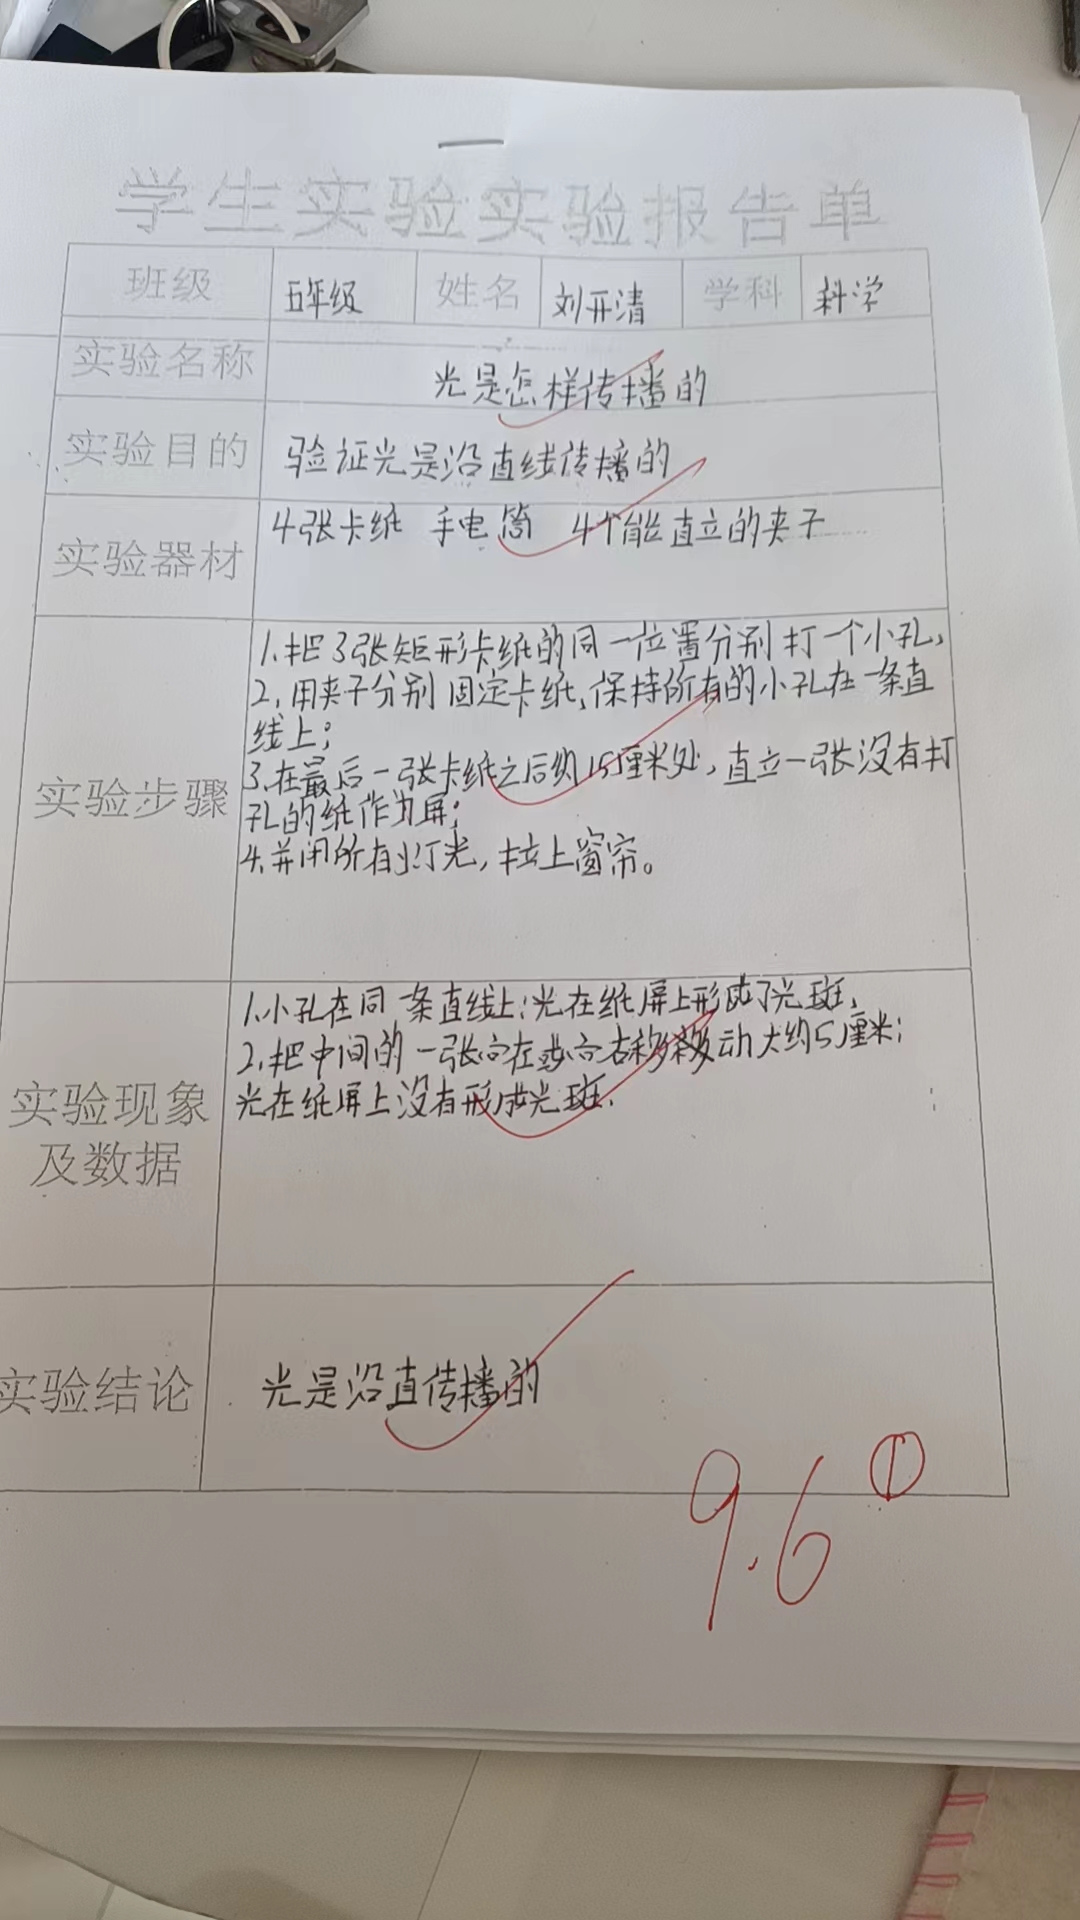 学生实验实验报告单
班级 五年级 姓名 刘开清 学科 科学
实验名称 光是怎样传播的
实验目的 验证光是沿直线传播的
实验器材 4张卡纸 手电筒 4个能直立的夹子
实验步骤
1.把3张矩形卡纸的同一位置分别打一个小孔,
2,用夹子分别固定卡纸,保持所有的小孔在一条直
线上;
3.在最后一张卡纸之后约15厘米处,直立一张没有打
孔的纸作为屏;
4.关闭所有灯光,拉上窗帘。
实验现象
及数据
1.小孔在同一条直线上:光在纸屏上形成了光斑.
2.把中间的一张向左或向右移移动大约5厘米;
光在纸屏上没有形成光斑.
实验结论 光是沿直传播的
9.6 ①